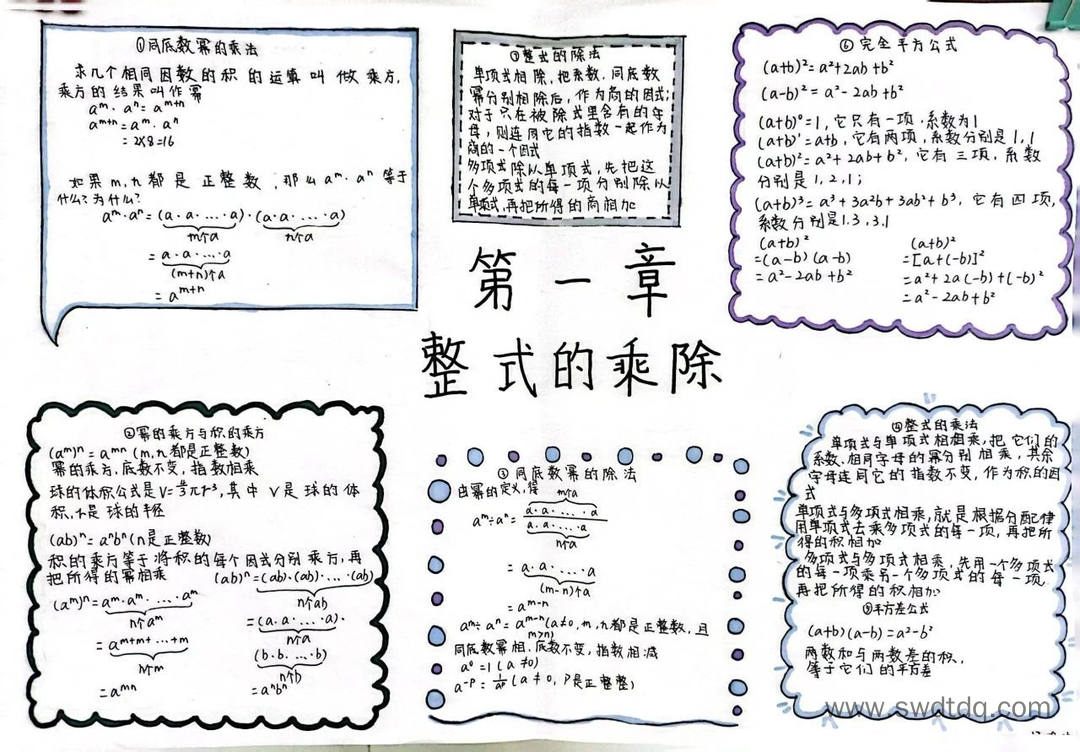 ①同底数幂的乘法
求几个相同因数的积的运算叫做乘方,
乘方的结果叫作幂
aᵐ·aⁿ=aᵐ⁺ⁿ
aᵐ⁺ⁿ=aᵐ·aⁿ
=2×8=16
如果m,n都是正整数,那么aᵐ·aⁿ等于
什么?为什么?
aᵐ·aⁿ=(a·a·…·a)·(a·a·…·a)
m个a n个a
=a·a·…·a
(m+n)个a
=aᵐ⁺ⁿ
⑦整式的除法
单项式相除,把系数,同底数
幂分别相除后,作为商的因式;
对于只在被除式里含有的字
母,则连同它的指数一起作为
商的一个因式
多项式除以单项式,先把这
个多项式的每一项分别除以
单项式,再把所得的商相加
⑥完全平方公式
(a+b)²=a²+2ab+b²
(a-b)²=a²-2ab+b²
(a+b)⁰=1,它只有一项,系数为1
(a+b)¹=a+b,它有两项,系数分别是1,1
(a+b)²=a²+2ab+b²,它有三项,系数
分别是1,2,1;
(a+b)³=a³+3a²b+3ab²+b³,它有四项,
系数分别是1.3,3.1
(a+b)² (a+b)²
=(a-b)(a-b) =[a+(-b)]²
=a²-2ab+b² =a²+2a(-b)+(-b)²
=a²-2ab+b²
第一章
整式的乘除
②幂的乘方与积的乘方
(aᵐ)ⁿ=aᵐⁿ(m,n都是正整数)
幂的乘方,底数不变,指数相乘
球的体积公式是V=4/3πr³,其中V是球的体
积,r是球的半径
(ab)ⁿ=aⁿbⁿ(n是正整数)
积的乘方等于将积的每个因式分别乘方,再
把所得的幂相乘 (ab)ⁿ=(ab)·(ab)·…·(ab)
n个ab
(aᵐ)ⁿ=aᵐ·aᵐ·…·aᵐ =(a·a·…·a)·
n个aᵐ n个a
=aᵐ⁺ᵐ⁺…⁺ᵐ (b·b·…·b)
n个m n个b
=aᵐⁿ =aⁿbⁿ
③同底数幂的除法
由幂的定义,得
m个a
aᵐ÷aⁿ=a·a·…·a/a·a·…·a
n个a
=a·a·…·a
(m-n)个a
=aᵐ⁻ⁿ
aᵐ÷aⁿ=aᵐ⁻ⁿ(a≠0,m,n都是正整数,且
m>n)
同底数幂相,底数不变,指数相减
a⁰=1(a≠0)
a⁻ᵖ=1/aᵖ(a≠0,p是正整整)
④整式的乘法
单项式与单项式相相乘,把它们的
系数、相同字母的幂分别相乘,其余
字母连同它的指数不变,作为积的因
式
单项式与多项式相乘,就是根据分配律
用单项式去乘多项式的每一项,再把所
得的积相加
多项式与多项式相乘,先用一个多项式
的每一项乘另一个多项式的每一项,
再把所得的积相加
⑤平方差公式
(a+b)(a-b)=a²-b²
两数和与两数差的积,
等于它们的平方差
www.swdtdq.com